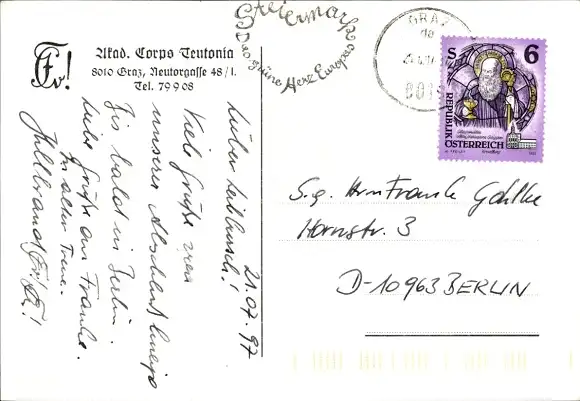 Akad. Corps Teutonia
8010 Graz, Neutorgasse 48/I.
Tel. 79 9 08
Steiermark
Das grüne Herz Europas
GRAZ
S 6
REPUBLIK
ÖSTERREICH
21.07.97
Lieber Leibbursch!
Viele Grüße von
unserer Abschlußkneipe
Bis bald in Berlin.
Liebe Grüße an Frauke.
In alter Treue.
Hildbrand
S.g. Herrn Frank Gahlke
Hornstr. 3
D-10963 BERLIN